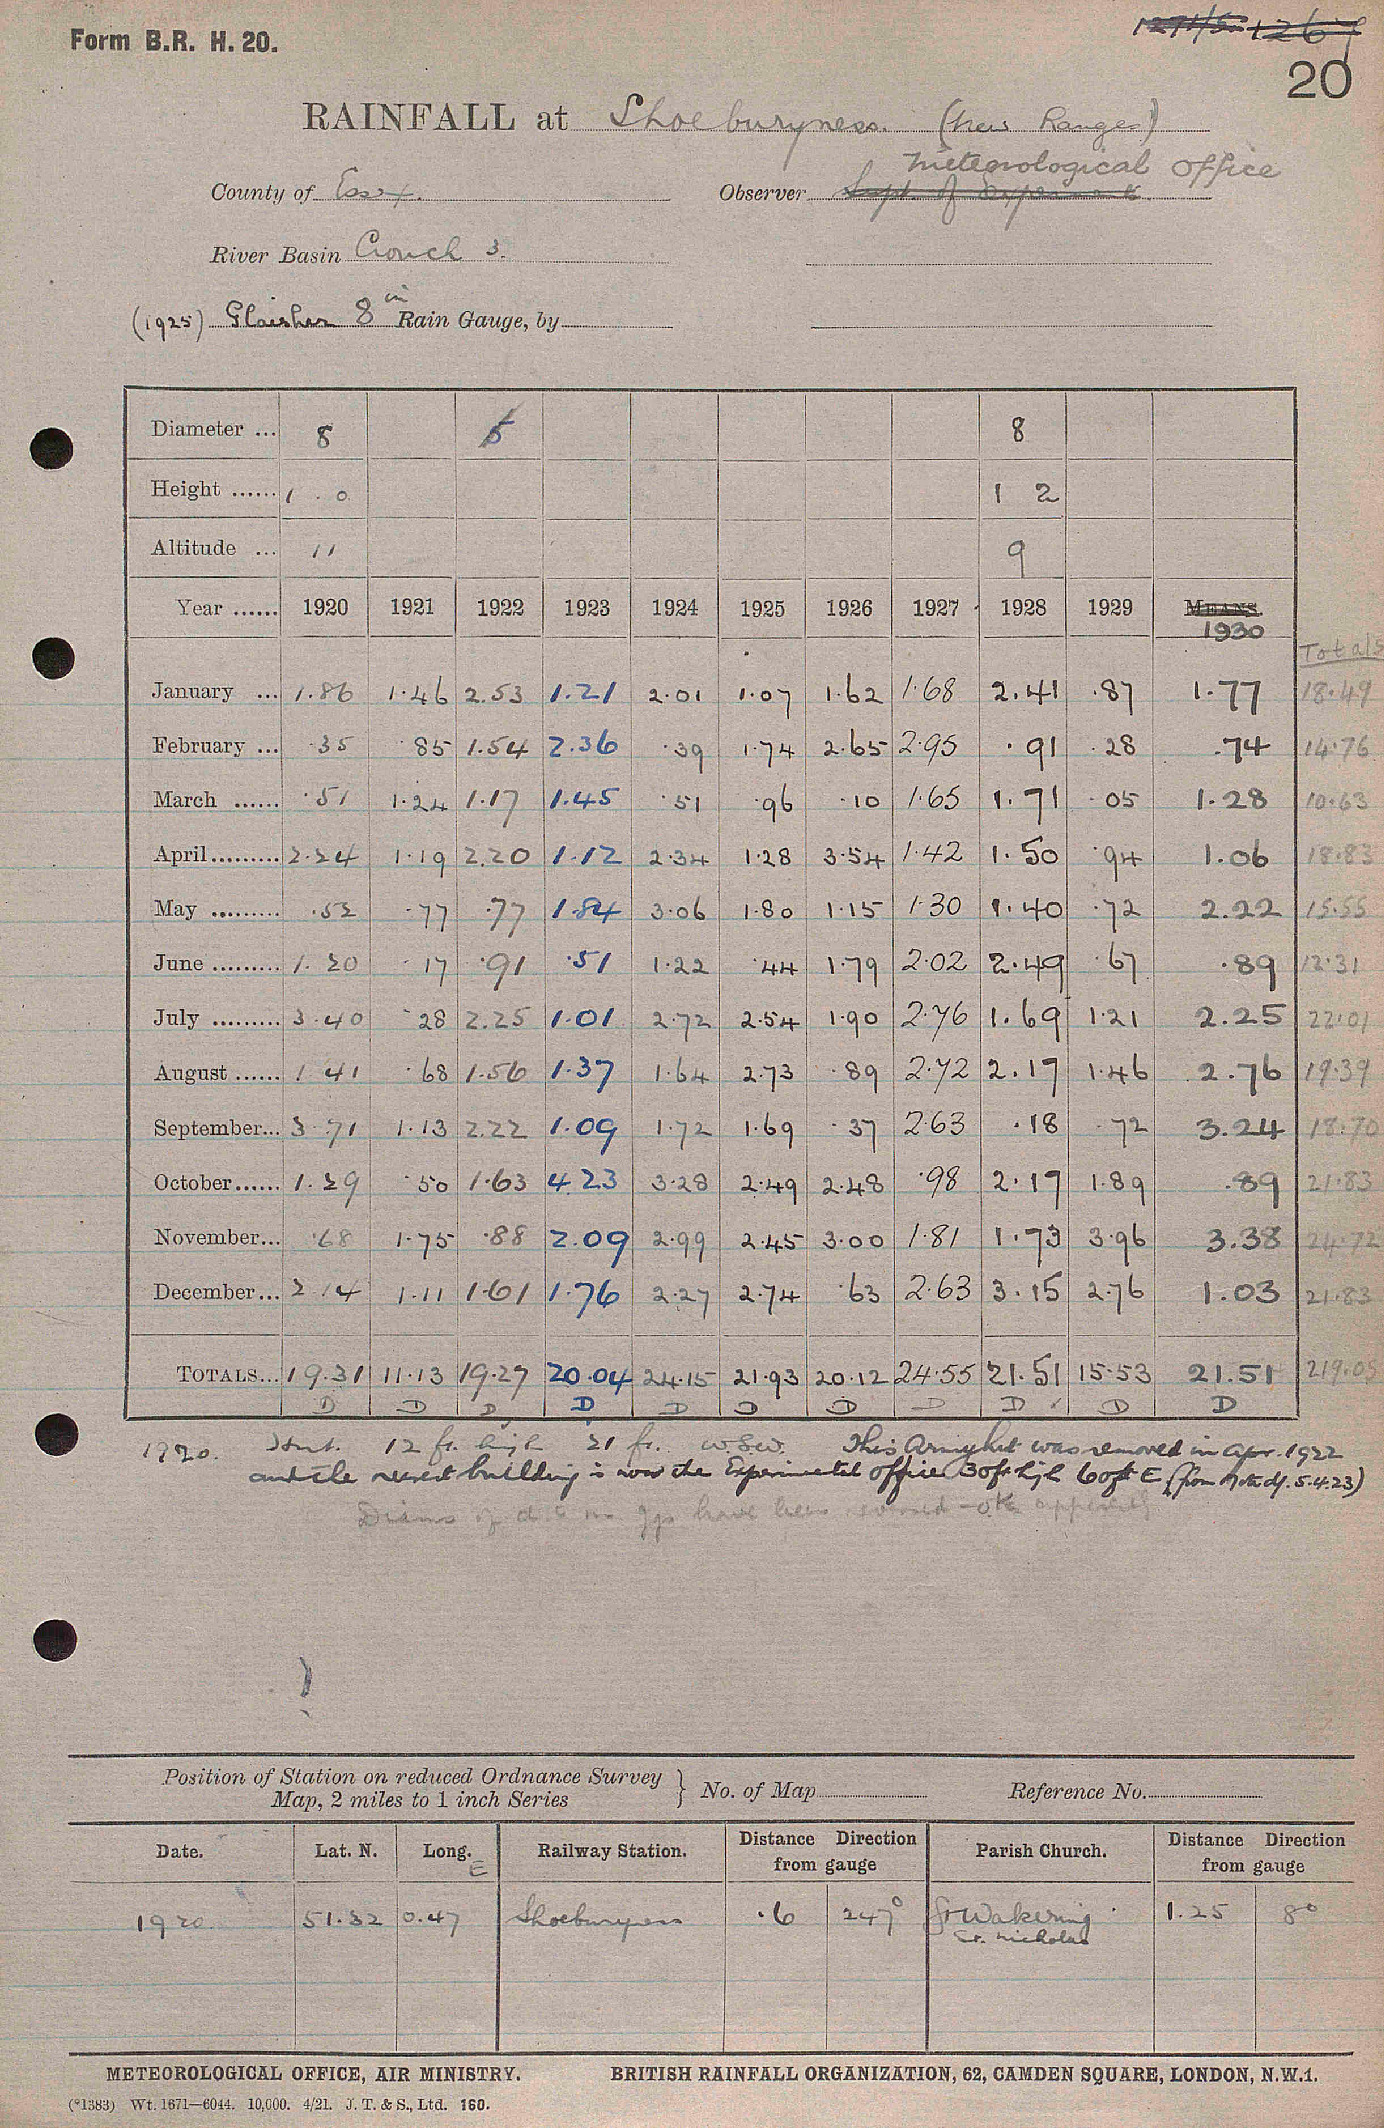 Form B.R. H. 20.
20
RAINFALL at Shoeburyness. (New Ranges)
Meteorological Office
County of Essex. Observer Supt. of Experiments
River Basin Crouch 3.
(1925) Glaisher 8 in Rain Gauge, by
Diameter ... 8 5 8
Height ...... 1 . 0 1 2
Altitude ... 11 9
Year ...... 1920 1921 1922 1923 1924 1925 1926 1927 1928 1929 MEANS.
1930
Totals
January ... 1.86 1.46 2.53 1.21 2.01 1.07 1.62 1.68 2.41 .87 1.77 18.49
February ... .35 .85 1.54 2.36 .39 1.74 2.65 2.95 .91 .28 .74 14.76
March ...... .51 1.24 1.17 1.45 .51 .96 .10 1.65 1.71 .05 1.28 10.63
April ......... 2.24 1.19 2.20 1.12 2.34 1.28 3.54 1.42 1.50 .94 1.06 18.83
May ......... .52 .77 .77 1.84 3.06 1.80 1.15 1.30 1.40 .72 2.22 15.55
June ......... 1.20 .17 .91 .51 1.22 .44 1.79 2.02 2.49 .67 .89 12.31
July ......... 3.40 .28 2.25 1.01 2.72 2.54 1.90 2.76 1.69 1.21 2.25 22.01
August ...... 1.41 .68 1.56 1.37 1.64 2.73 .89 2.72 2.17 1.46 2.76 19.39
September... 3.71 1.13 2.22 1.09 1.72 1.69 .37 2.63 .18 .72 3.24 18.70
October...... 1.29 .50 1.63 4.23 3.28 2.49 2.48 .98 2.17 1.89 .89 21.83
November... .68 1.75 .88 2.09 2.99 2.45 3.00 1.81 1.73 3.96 3.38 24.72
December... 2.14 1.11 1.61 1.76 2.27 2.74 .63 2.63 3.15 2.76 1.03 21.83
TOTALS... 19.31 11.13 19.27 20.04 24.15 21.93 20.12 24.55 21.51 15.53 21.51 219.05
D D D D D D D D D D D
1920. Hut. 12 ft. high 21 ft. W.S.W. This Army hut was removed in Apr. 1922
and the nearest building is now the Experimental Office 30ft high 60ft E (from Note df. 5.4.23)
have been
Position of Station on reduced Ordnance Survey
Map, 2 miles to 1 inch Series } No. of Map Reference No.
Date. Lat. N. Long. E Railway Station. Distance Direction from gauge Parish Church. Distance Direction from gauge
1920 51.32 0.47 Shoeburyness .6 247° Gt Wakering 1.25 8°
St. Nicholas
METEOROLOGICAL OFFICE, AIR MINISTRY. BRITISH RAINFALL ORGANIZATION, 62, CAMDEN SQUARE, LONDON, N.W.1.
(*1383) Wt. 1671—6044. 10,000. 4/21. J. T. & S., Ltd. 160.